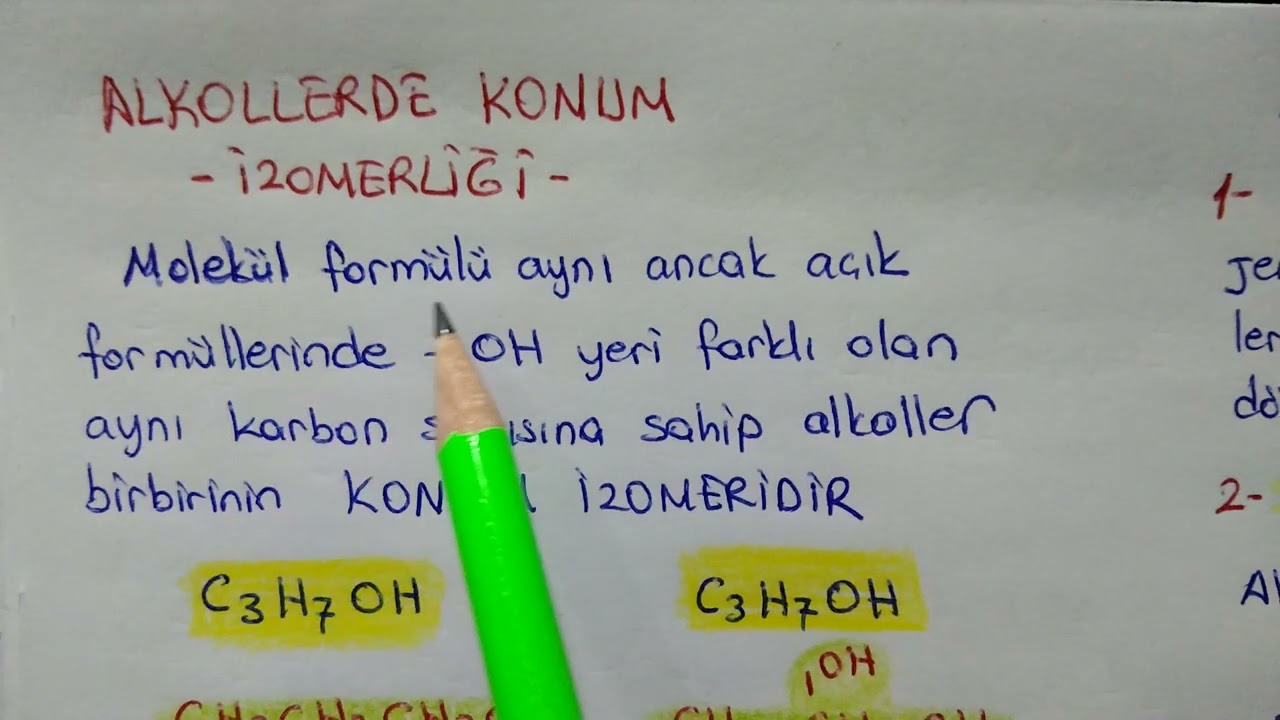 ALKOLLERDE KONUM
- İZOMERLİĞİ -
Molekül formülü aynı ancak açık
formüllerinde - OH yeri farklı olan
aynı karbon sayısına sahip alkoller
birbirinin KONUM İZOMERİDİR
C3H7OH
C3H7OH
OH
1-
2-